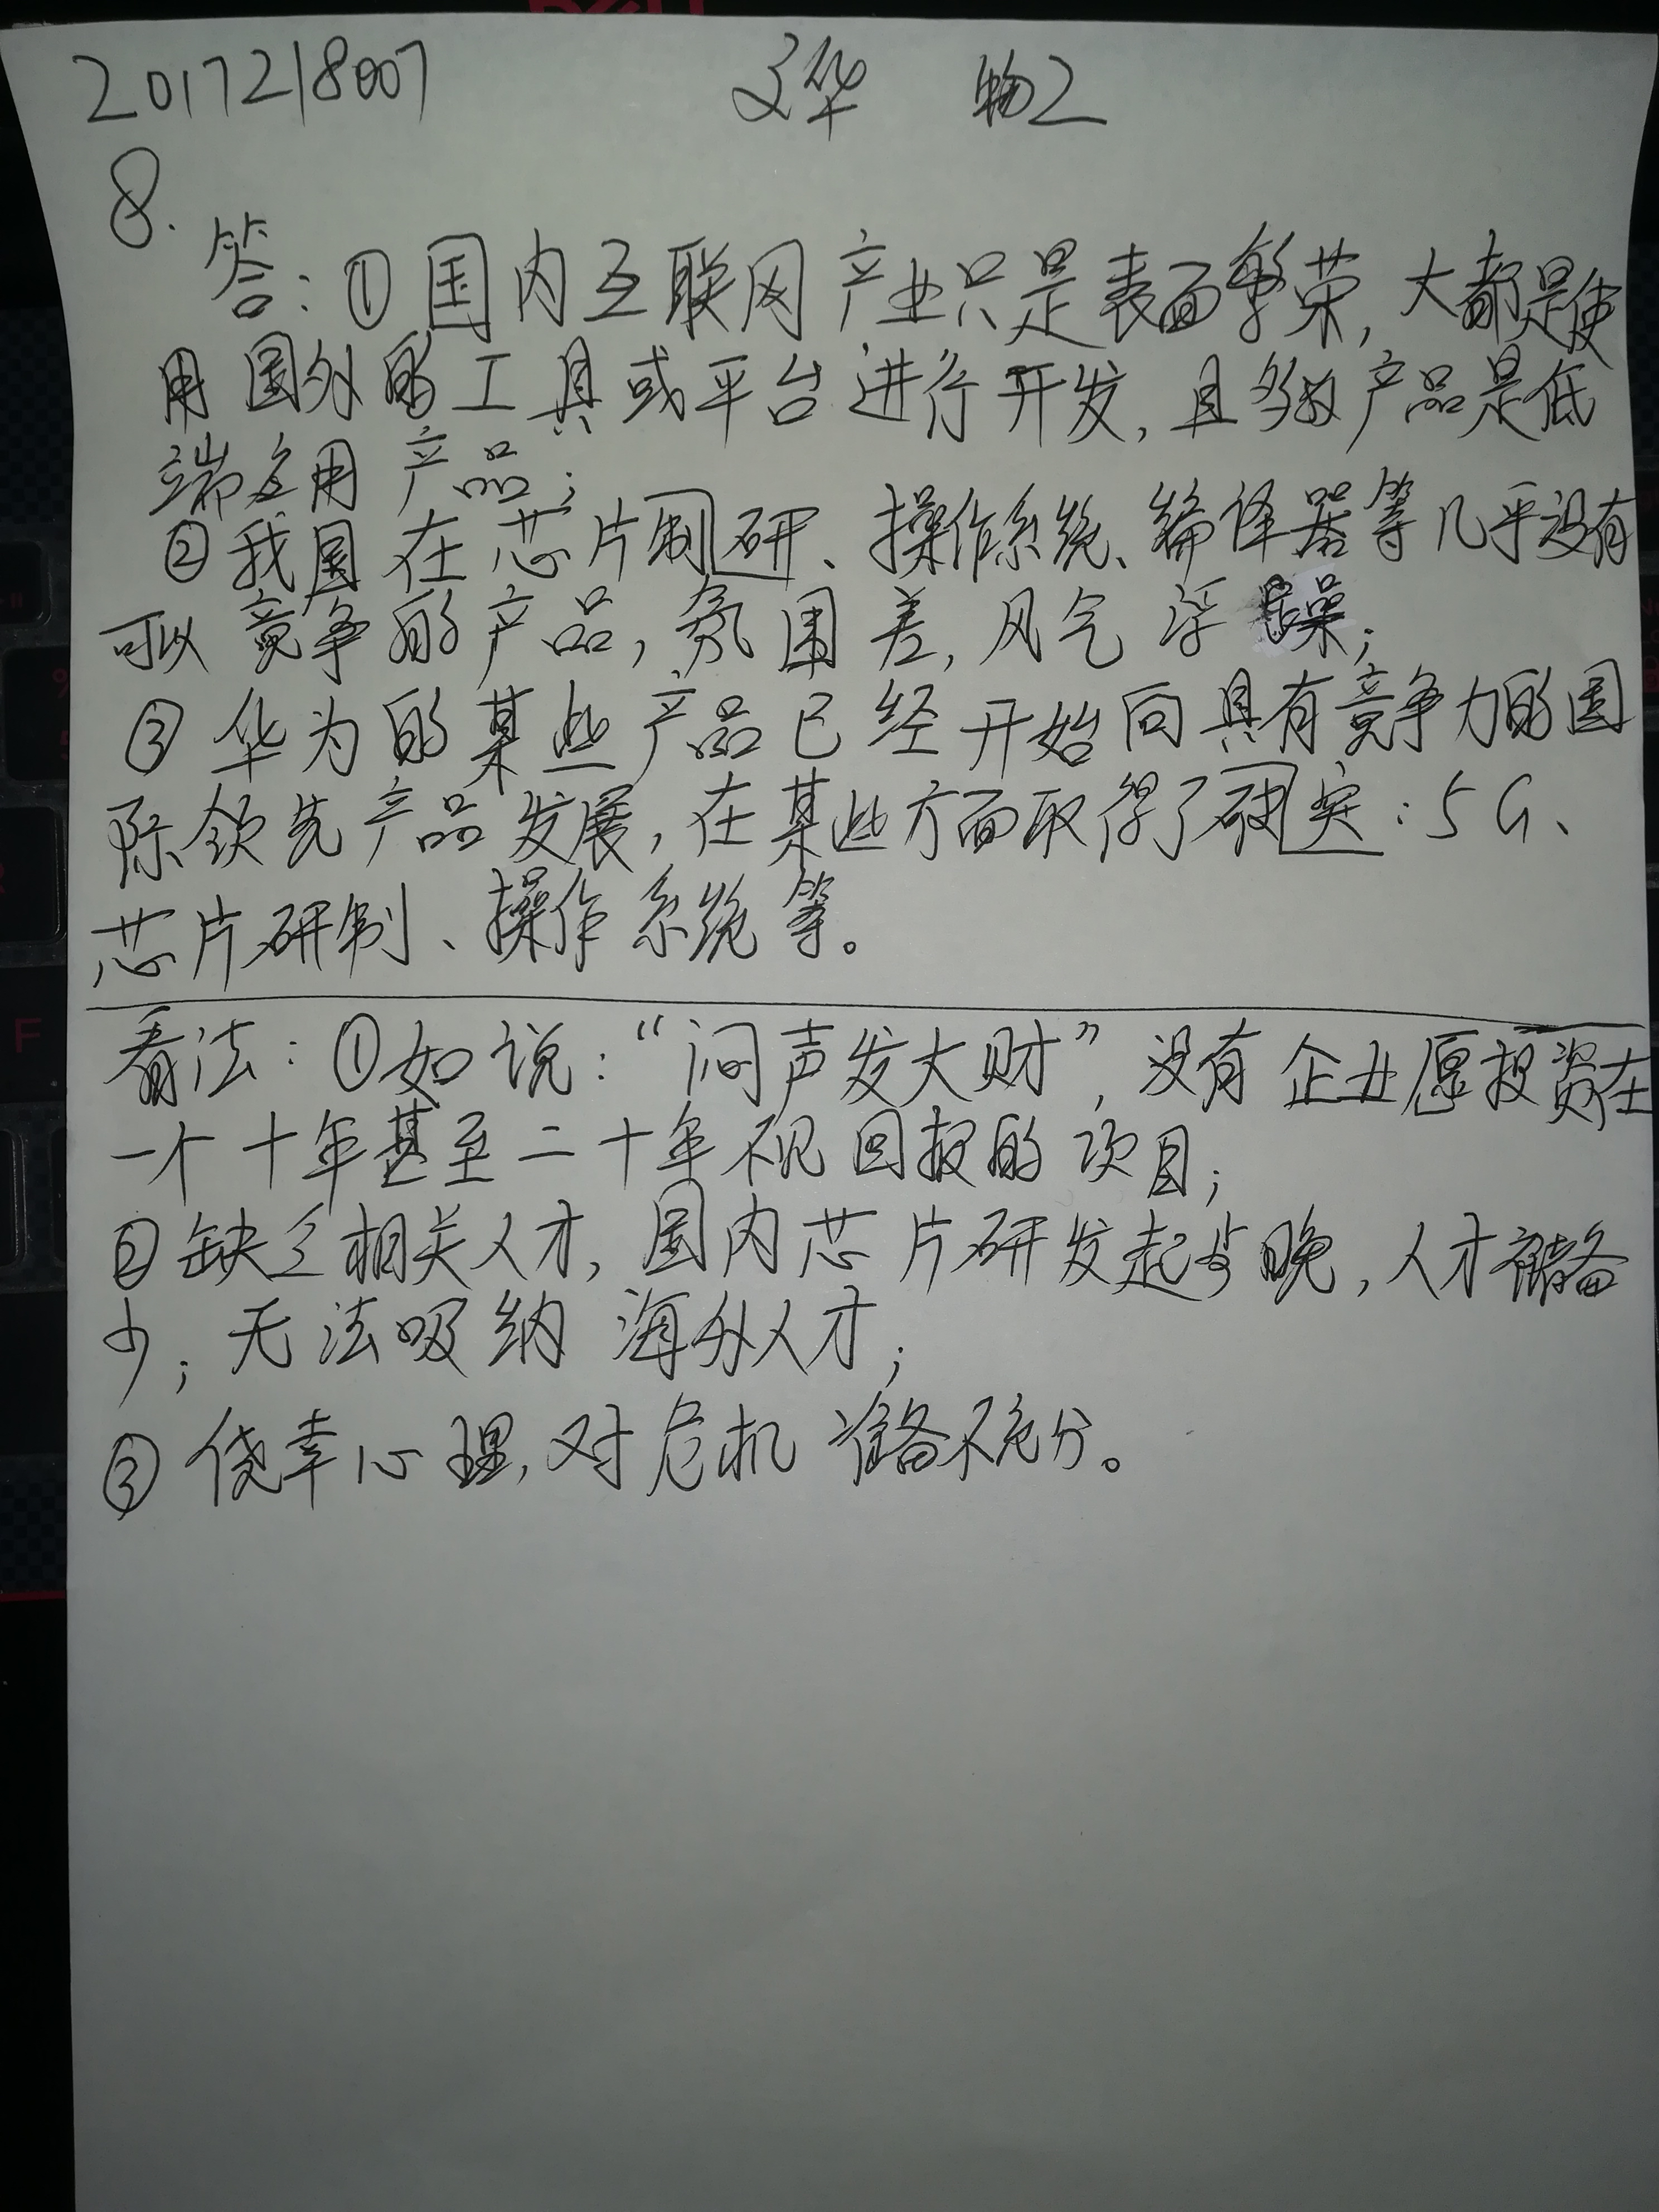 2017218007 文华 物2
8.
答：①国内互联网产业只是表面繁荣，大都是使
用国外的工具或平台进行开发，且多数产品是低
端应用产品；
②我国在芯片制研、操作系统、编译器等几乎没有
可以竞争的产品，氛围差，风气浮躁；
③华为的某些产品已经开始向具有竞争力的国
际领先产品发展，在某些方面取得了破突：5G、
芯片研制、操作系统等。
看法：①如说：“闷声发大财”，没有企业愿投资在
一个十年甚至二十年不见回报的项目；
②缺乏相关人才，国内芯片研发起步晚，人才储备
少；无法吸纳海外人才；
③侥幸心理，对危机准备不充分。